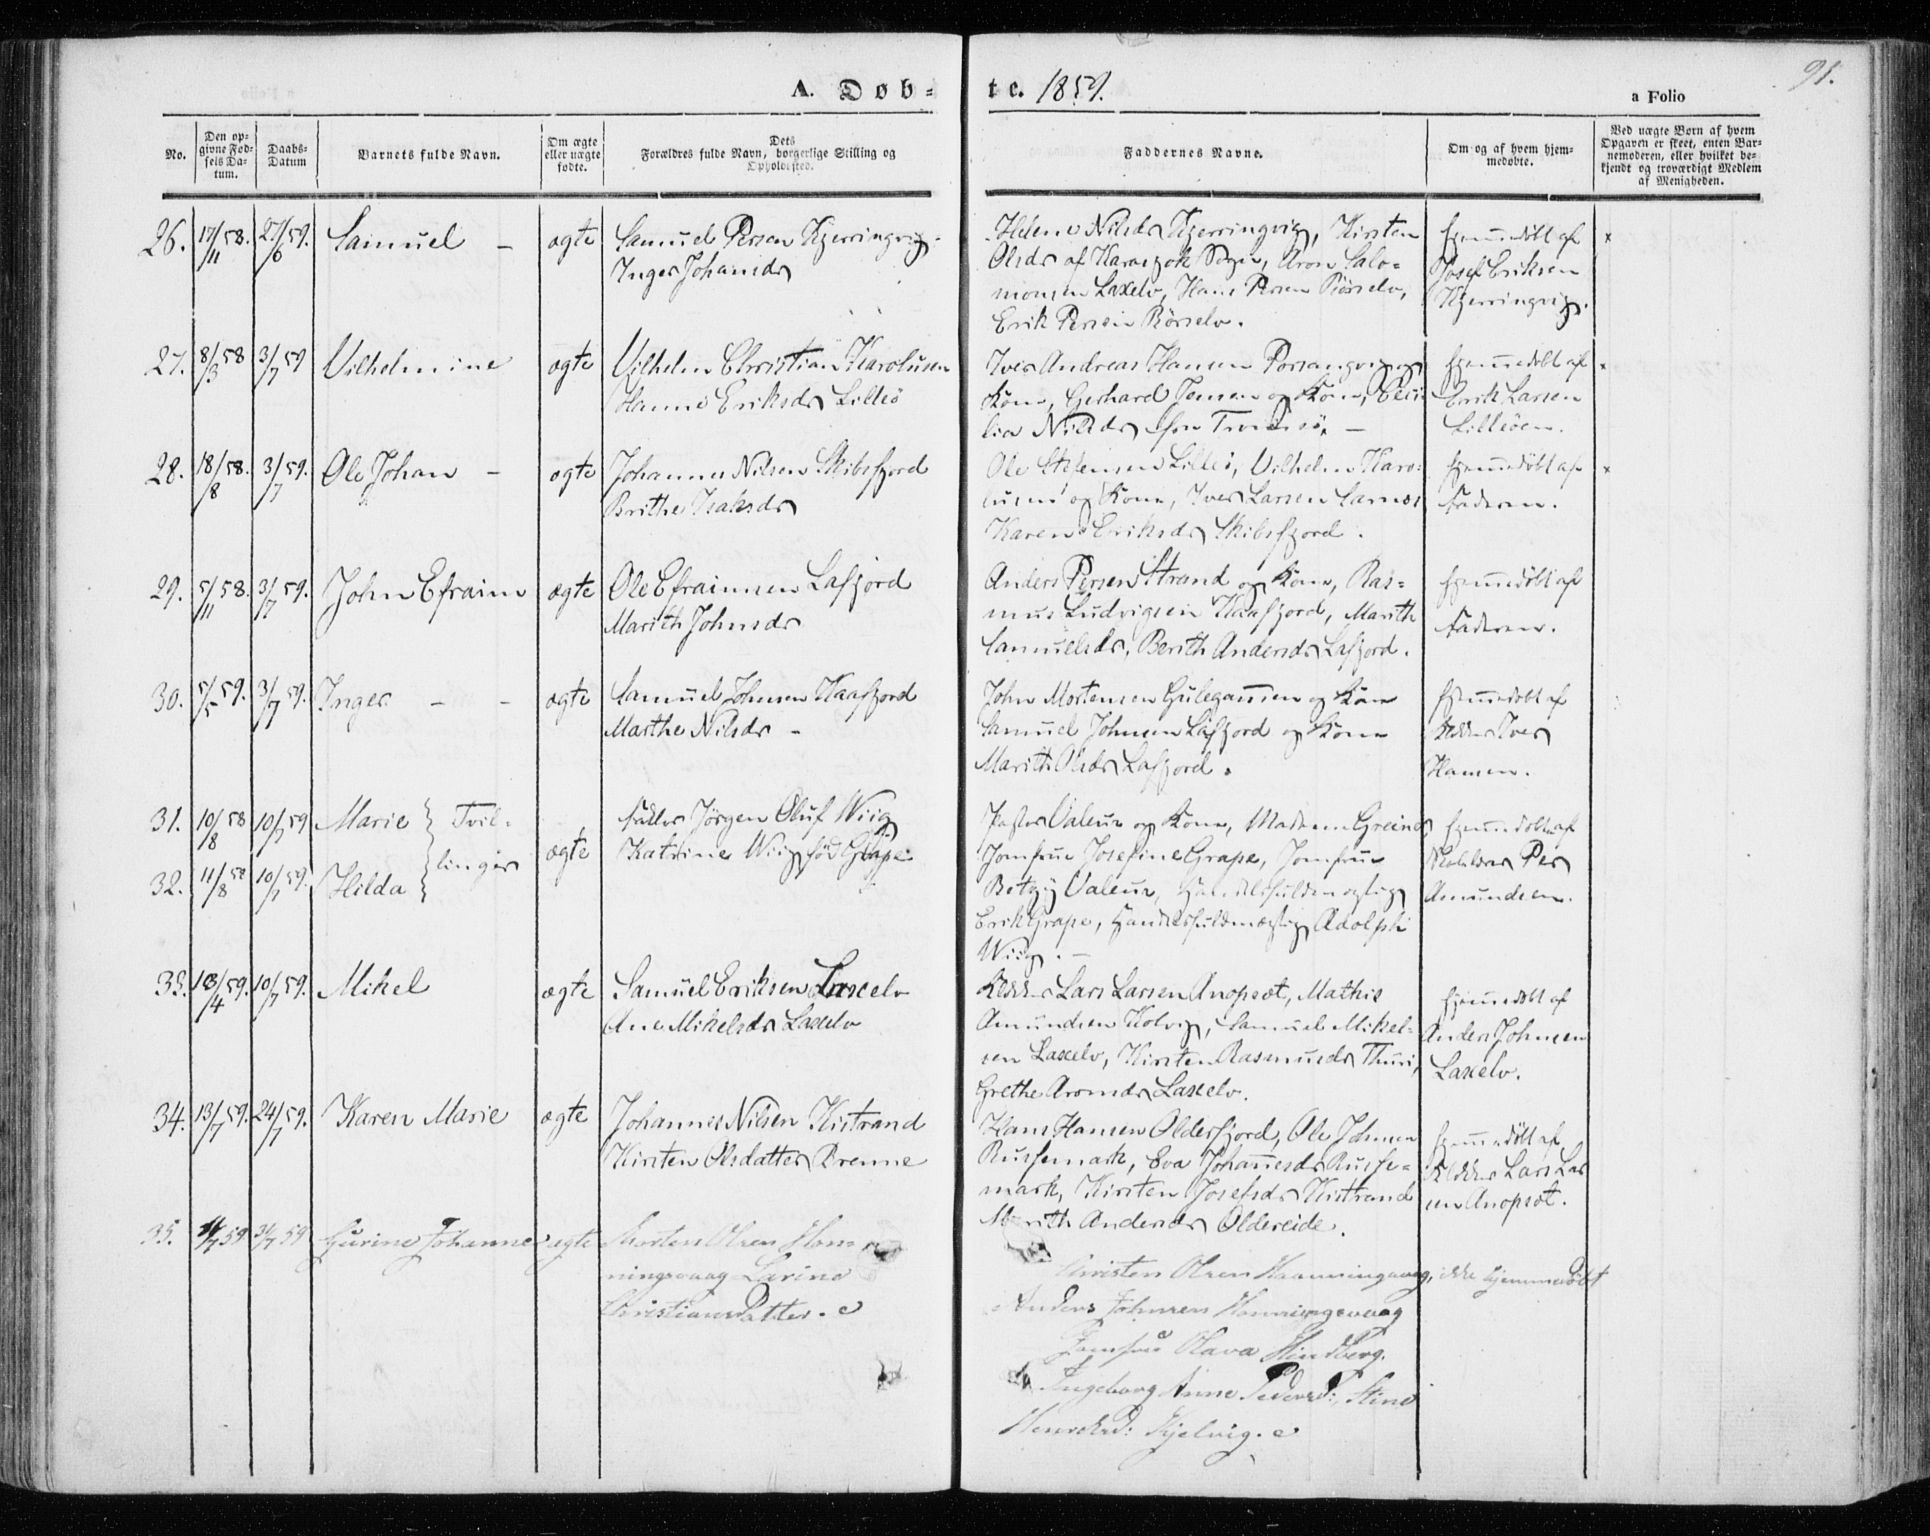 91.
A. Døb-
te. 1859.
a Folio
No.
Den op-
givne Fød-
sels Da-
tum.
Daabs-
Datum
Barnets fulde Navn.
Om ægte
eller uægte
fødte.
Dets
Forældres fulde Navn, borgerlige Stilling og
Opholdssted.
Faddernes Navne.
Om og af hvem hjem-
medøbte.
Ved uægte Børn af hvem
Opgaven er skeet, enten Bar-
nemoderen, eller hvilket be-
kjendt og troværdigt Medlem
af Menigheden.
26. 17/11 58. 27/6 59. Samuel - ægte
Samuel Persen Kjerringvig
Inger Johansdr
Helene Nilsdr Kjerringvig, Kirsten
Olsdr af Karasjok Sogn, Aron Salo-
monsen Laxelv, Hans Persen Börselv,
Erik Persen Börselv.
hjemmedøbt af
Josef Eriksen
Kjerringvig.
27. 8/3 58 3/7 59 Vilhelmine ægte
Vilhelm Christian Karolusen
Hanne Eriksdr Lilleö
Iver Andreas Hansen Porsangvig og
Kone, Gerhard Jensen og Kone, Ceci-
lia Nilsdr fra Tromsö. -
hjemmedøbt af
Erik Larsen
Lilleöen.
28. 18/8 58. 3/7 59. Ole Johan - ægte
Johannes Nilsen Skibsfjord
Brithe Isaksdr
Ole Stefensen Lilleö, Vilhelm Karo-
lusen og Kone, Iver Larsen Sarnes
Karen Eriksdr Skibsfjord.
hjemmedøbt af
Faderen.
29. 5/11 58. 3/7 59. John Efraim ægte
Ole Efraimsen Lafjord
Marith Johnsdr
Anders Persen Strand og Kone, Ras-
mus Ludvigsen Kaafjord, Marith
Samuelsdr, Berith Andersdr Lafjord.
hjemmedøbt af
Faderen.
30. 5/5 59. 3/7 59. Inger - - ægte
Samuel Johnsen Kaafjord
Marthe Nilsdr -
John Mortensen Gulegammen og Kone
Samuel Johnsen Lafjord og Kone
Marith Olsdr Lafjord.
hjemmedøbt af
Klokker Iver
Hansen.
31. 10/8 58 10/7 59 Marie } Tvil-
32. 11/8 58 10/7 59. Hilda } linger ægte
Jørgen Oluf Wiig
Katrine Wiig fød Grape
Pastor Valeur og Kone, Madam Greiner
Jomfrue Josefine Grape, Jomfrue
Betzy Valeur, Handelsfuldmægtig
Erik Grape, Handelsfuldmægtig Adolph
Wiig. -
hjemmedøbt af
Per
Amundsen.
33. 18/4 59. 10/7 59. Mikel ægte
Samuel Eriksen Laxelv
Ane Mikelsdr Laxelv
Klokker Lars Larsen Anopset, Mathis
Amundsen Kolvig, Samuel Mikel-
sen Laxelv, Kirsten Rasmusdr Thuri,
Grethe Aronsdr Laxelv.
hjemmedøbt af
Anders Johnsen
Laxelv.
34. 13/7 59. 24/7 59. Karen Marie ægte
Johannes Nilsen Kistrand
Kirsten Olsdatter Brenne
Hans Hansen Olderfjord, Ole Johnsen
Russemark, Eva Johannesdr Russe-
mark, Kirsten Josefsdr Kistrand
Marith Andersdr Oldereide.
hjemmedøbt af
Klokker Lars Lar
sen Anopset.
35. 4/7 59 31/7 59 Gurine Johanne ægte
Morten Olsen Hon-
ningsvaag Larine
Christiansdatter.
Christen Olsen Honningsvaag,
Anders Johnsen Honningsvaag
Jomfru Olava Hindberg.
Ingeborg Anne Pedersd:, Stine
Henriksd: Kjelvig.
ikke hjemmedøbt